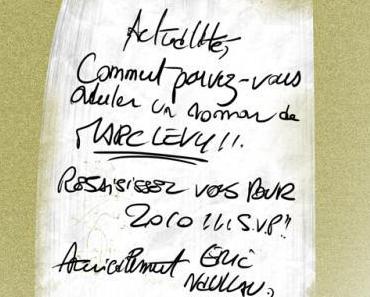 Actualitté,
Comment pouvez-vous
aduler un roman de
MARC LEVY !!.
RESAISISSEZ VOUS POUR
2010 !!! S.V.P !!
Amicalement ERIC
NAULLEAU.